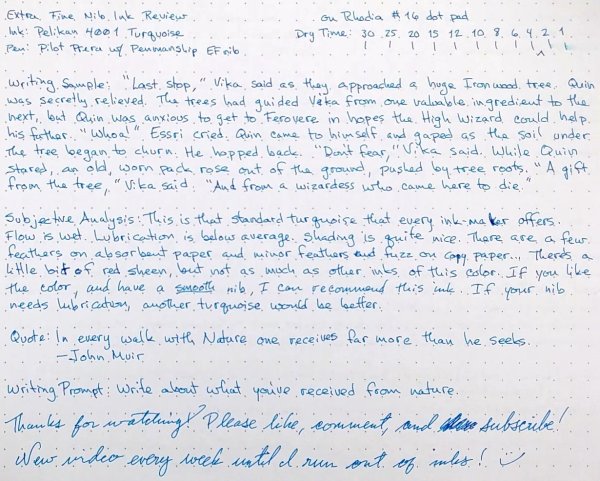 Extra Fine Nib Ink Review on Rhodia #16 dot pad
Ink: Pelikan 4001 Turquoise Dry Time: 30 25 20 15 12 10 8 6 4 2 1
Pen: Pilot Prera w/ Penmanship EF nib
Writing Sample: "Last stop," Vika said as they approached a huge Ironwood tree. Quin
was secretly relieved. The trees had guided Vika from one valuable ingredient to the
next, but Quin was anxious to get to Ferovere in hopes the High Wizard could help
his father. "Whoa!" Essri cried. Quin came to himself and gaped as the soil under
the tree began to churn. He hopped back. "Don't fear," Vika said. While Quin
stared, an old, worn pack rose out of the ground, pushed by tree roots. "A gift
from the tree," Vika said. "And from a wizardess who came here to die."
Subjective Analysis: This is that standard turquoise that every ink-maker offers.
Flow is wet. Lubrication is below average. Shading is quite nice. There are a few
feathers on absorbent paper and minor feathers and fuzz on copy paper... There's a
little bit of red sheen, but not as much as other inks of this color. If you like
the color, and have a smooth nib, I can recommend this ink. If your nib
needs lubrication, another turquoise would be better.
Quote: In every walk with Nature one receives far more than he seeks.
—John Muir
Writing Prompt: Write about what you've received from nature.
Thanks for watching! Please like, comment, and subscribe!
New video every week until I run out of inks!